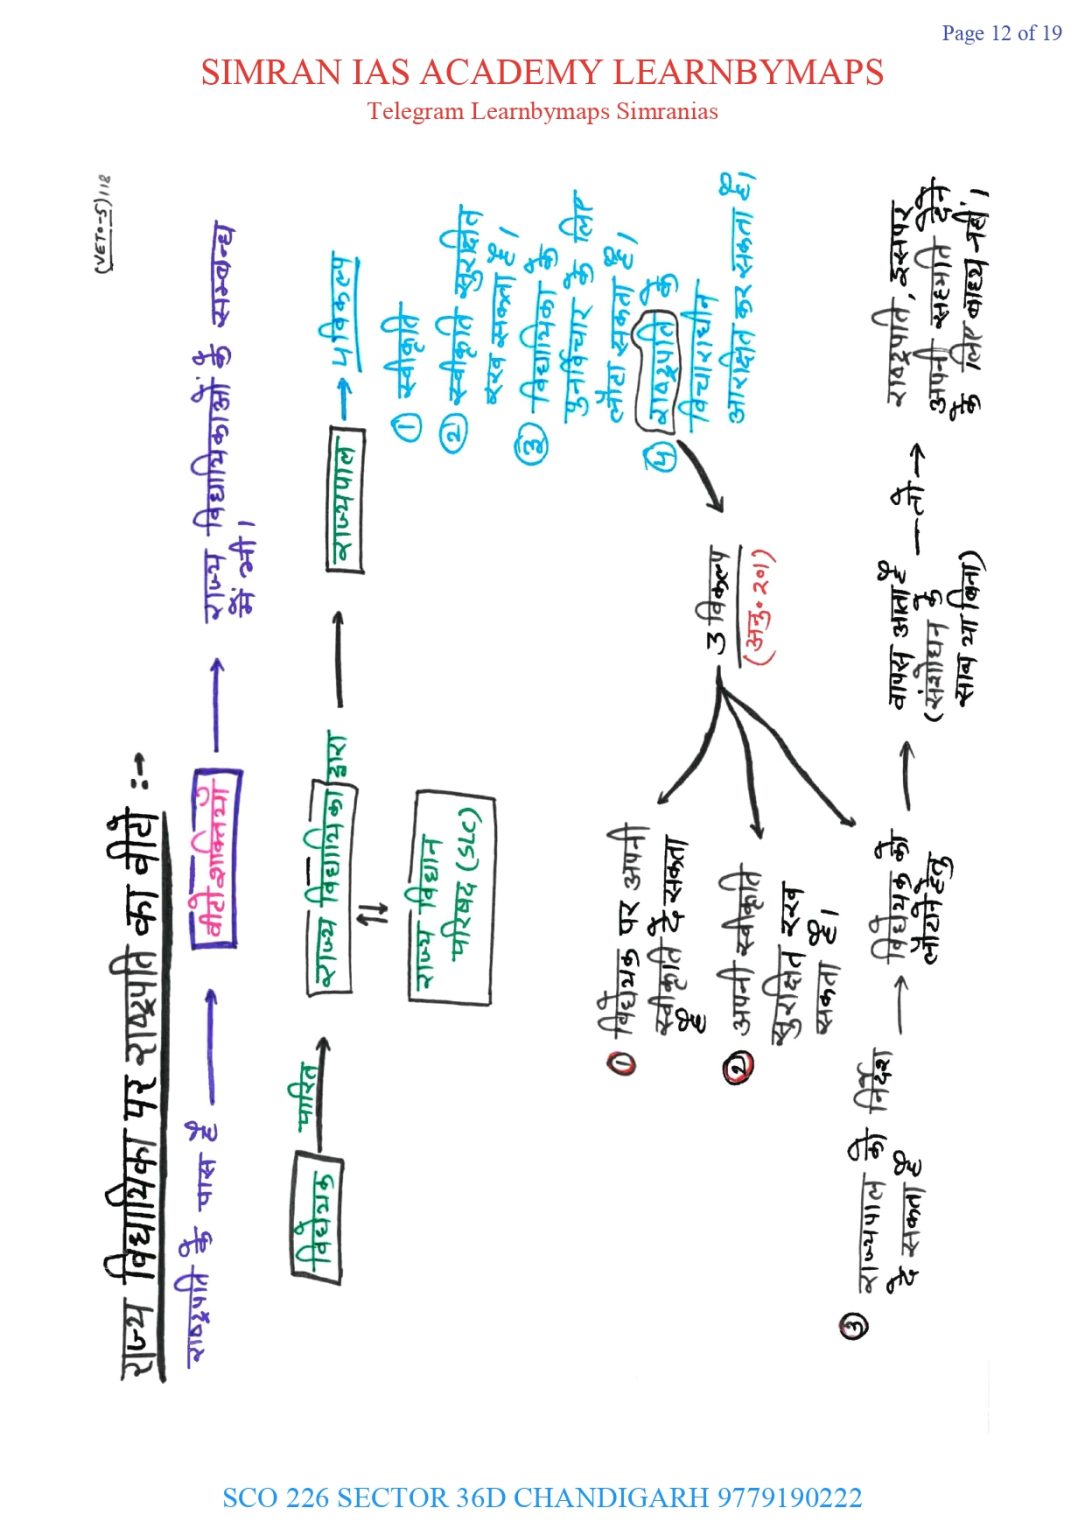 Page 12 of 19
SIMRAN IAS ACADEMY LEARNBYMAPS
Telegram Learnbymaps Simranias
(VETO-5)118
राज्य विधायिका पर राष्ट्रपति का वीटो :→
राष्ट्रपति के पास है → वीटो शक्तियाँ → राज्य विधायिकाओं के सम्बन्ध
में भी।
विधेयक पारित → राज्य विधायिका द्वारा → राज्यपाल → 4 विकल्प
⇅
राज्य विधान
परिषद (SLC)
① स्वीकृति
② स्वीकृति सुरक्षित
रख सकता है।
③ विधायिका के
पुनर्विचार के लिए
लौटा सकता है।
④ राष्ट्रपति के
विचाराधीन
आरक्षित कर सकता है।
3 विकल्प
(अनु॰ 201)
① विधेयक पर अपनी
स्वीकृति दे सकता
है
② अपनी स्वीकृति
सुरक्षित रख
सकता है।
③ राज्यपाल को निर्देश
दे सकता है
→ विधेयक को
लौटाने हेतु
→ वापस आता है
(संशोधन के
साथ या बिना)
—तो→
राष्ट्रपति, इसपर
अपनी सहमति देने
के लिए बाध्य नहीं।
SCO 226 SECTOR 36D CHANDIGARH 9779190222